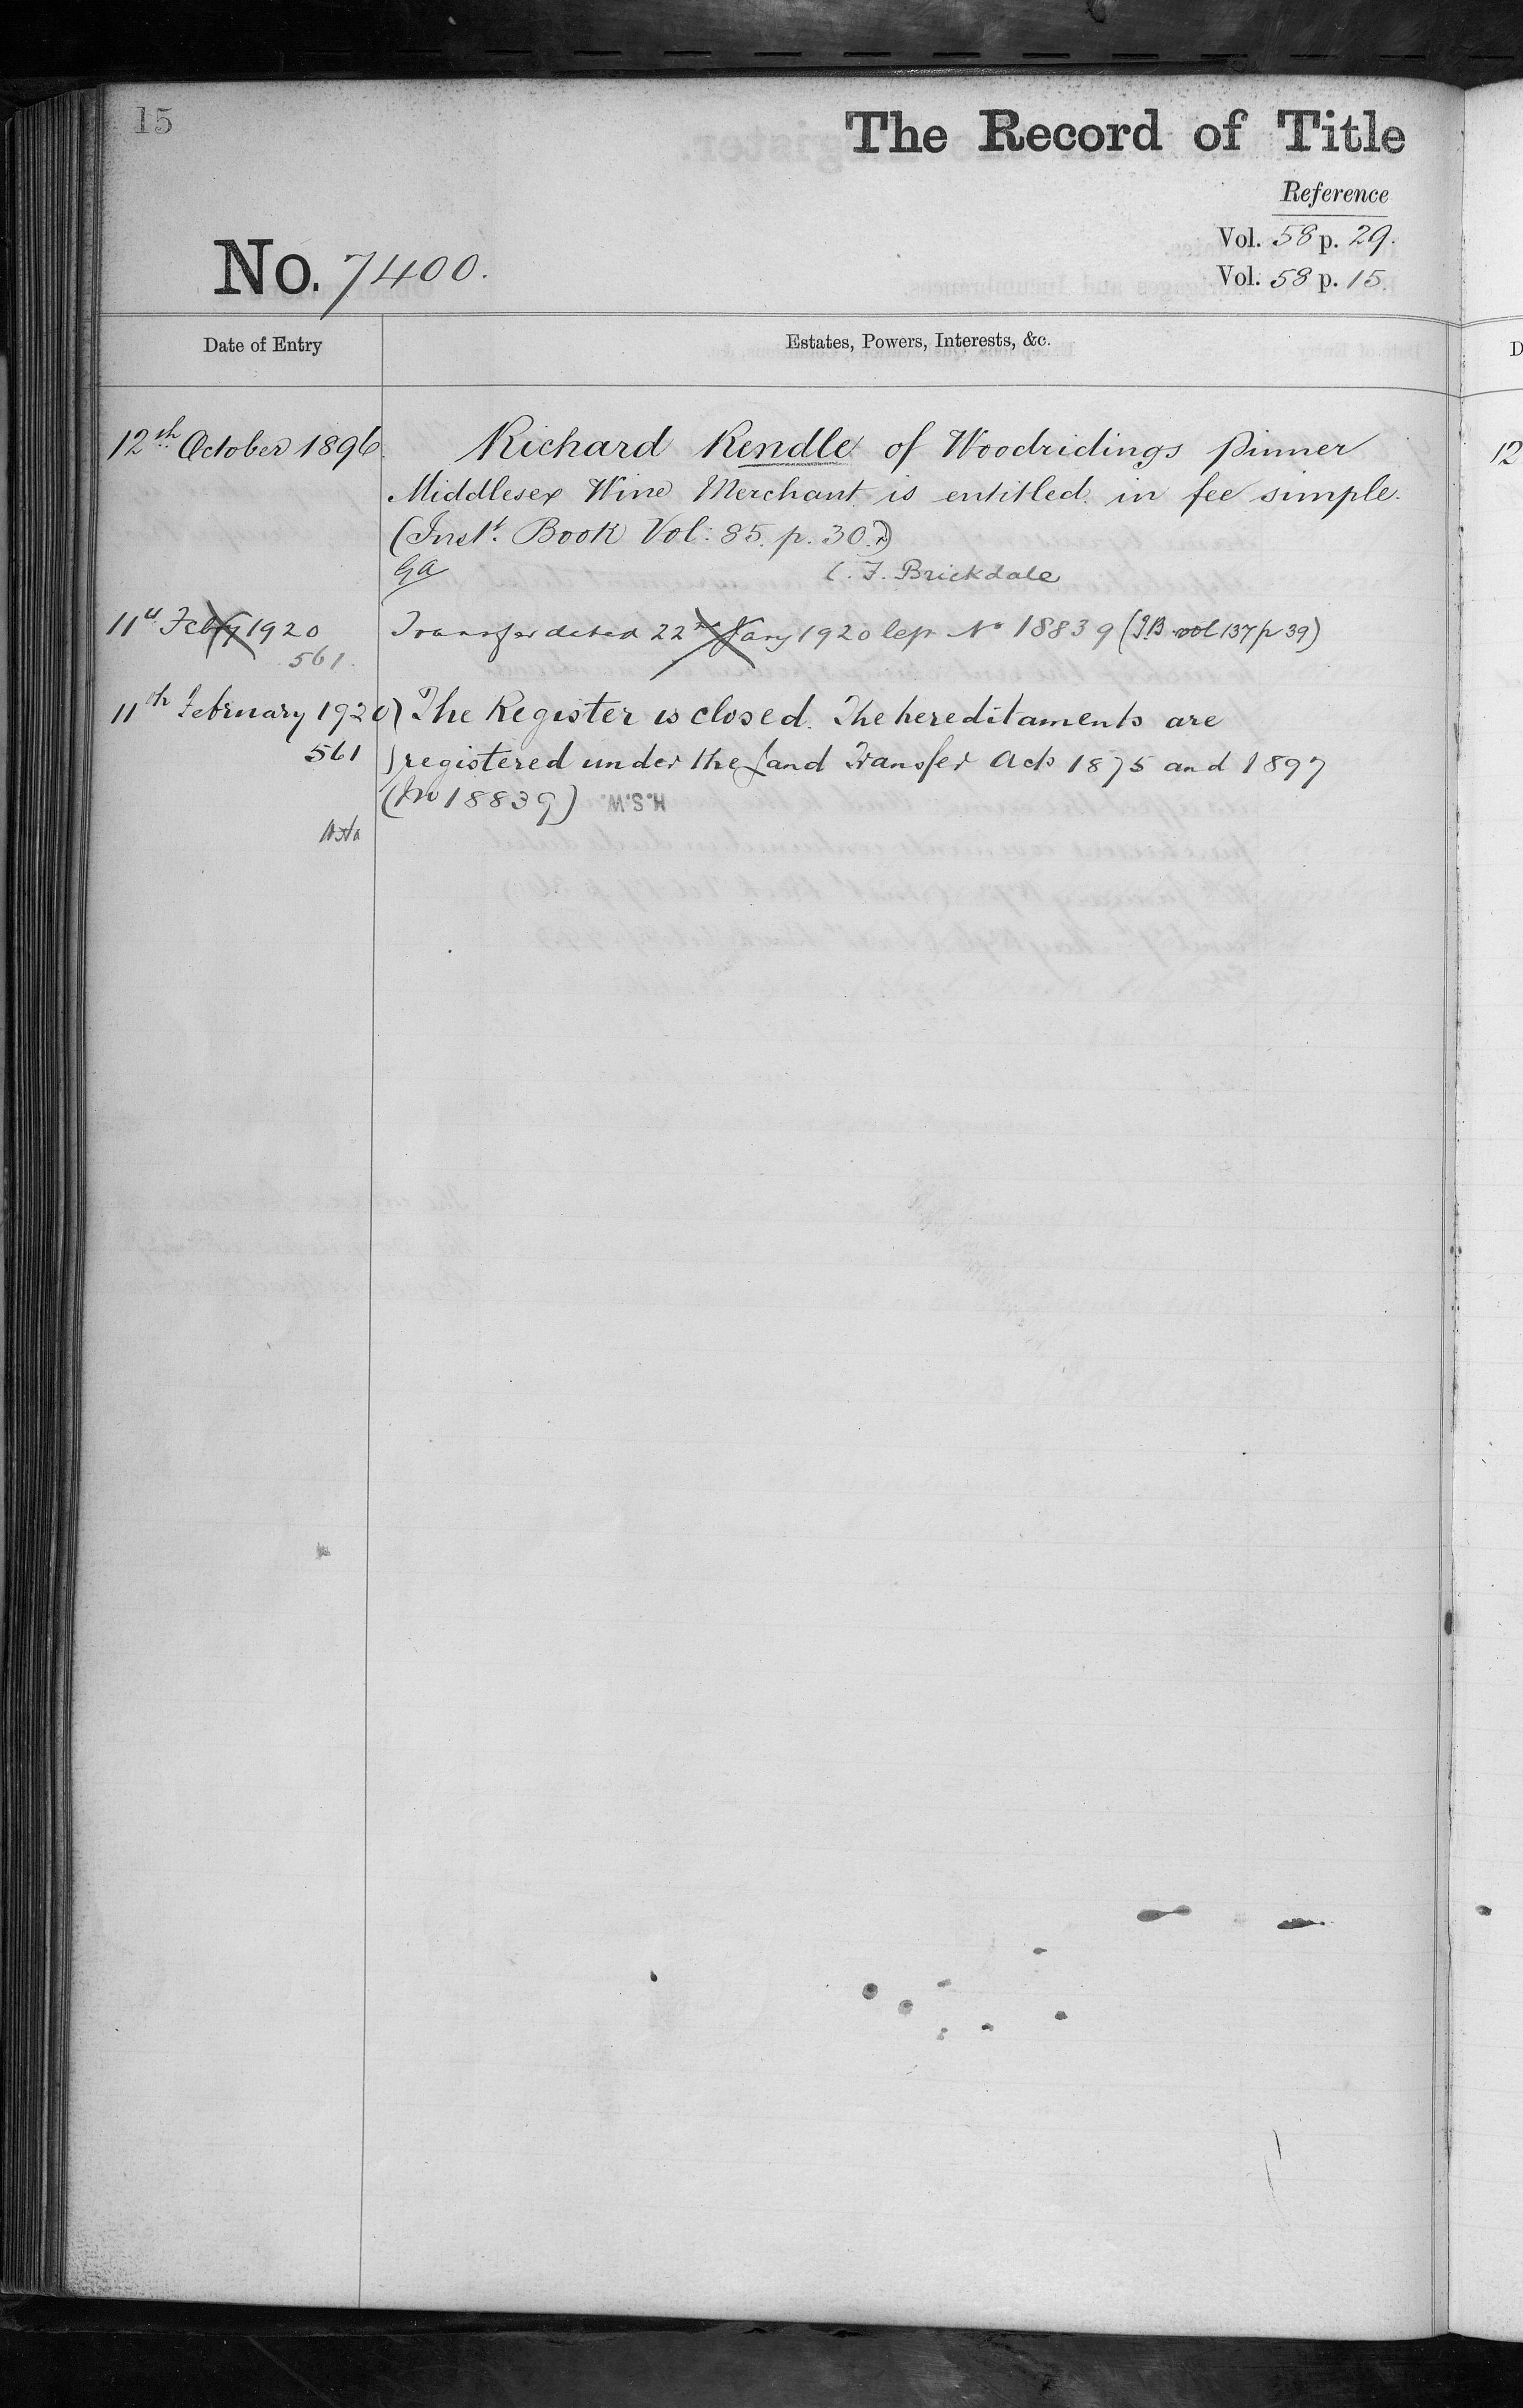 15
The Record of Title
Reference
Vol. 58 p. 29.
No. 7400.
Vol. 58 p. 15.
Date of Entry
Estates, Powers, Interests, &c.
12th October 1896
Richard Kendle of Woodridings Pinner
Middlesex Wine Merchant is entitled in fee simple.
(Inst. Book Vol: 85. p. 30.)
GA C. F. Brickdale
11th Feby 1920 Transfer dated 22nd Jany 1920 No 18839 (I.B. vol 137 p 39)
561.
11th February 1920) The Register is closed. The hereditaments are
561 ) registered under the Land Transfer Acts 1875 and 1897
(No 18839) H.S.W.
D
12